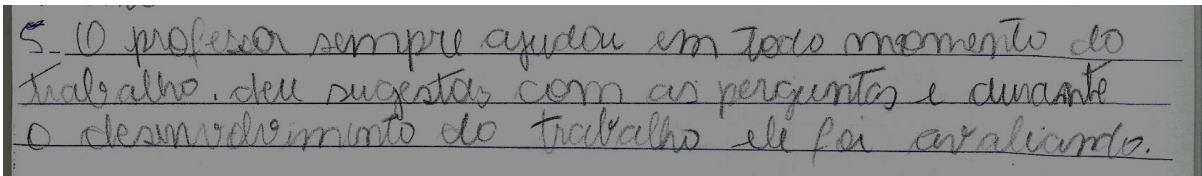 5- O professor sempre ajudou em todo momento do
trabalho. deu sugestas com as perguntas e durante
o desenvolvimento do trabalho ele foi avaliando.